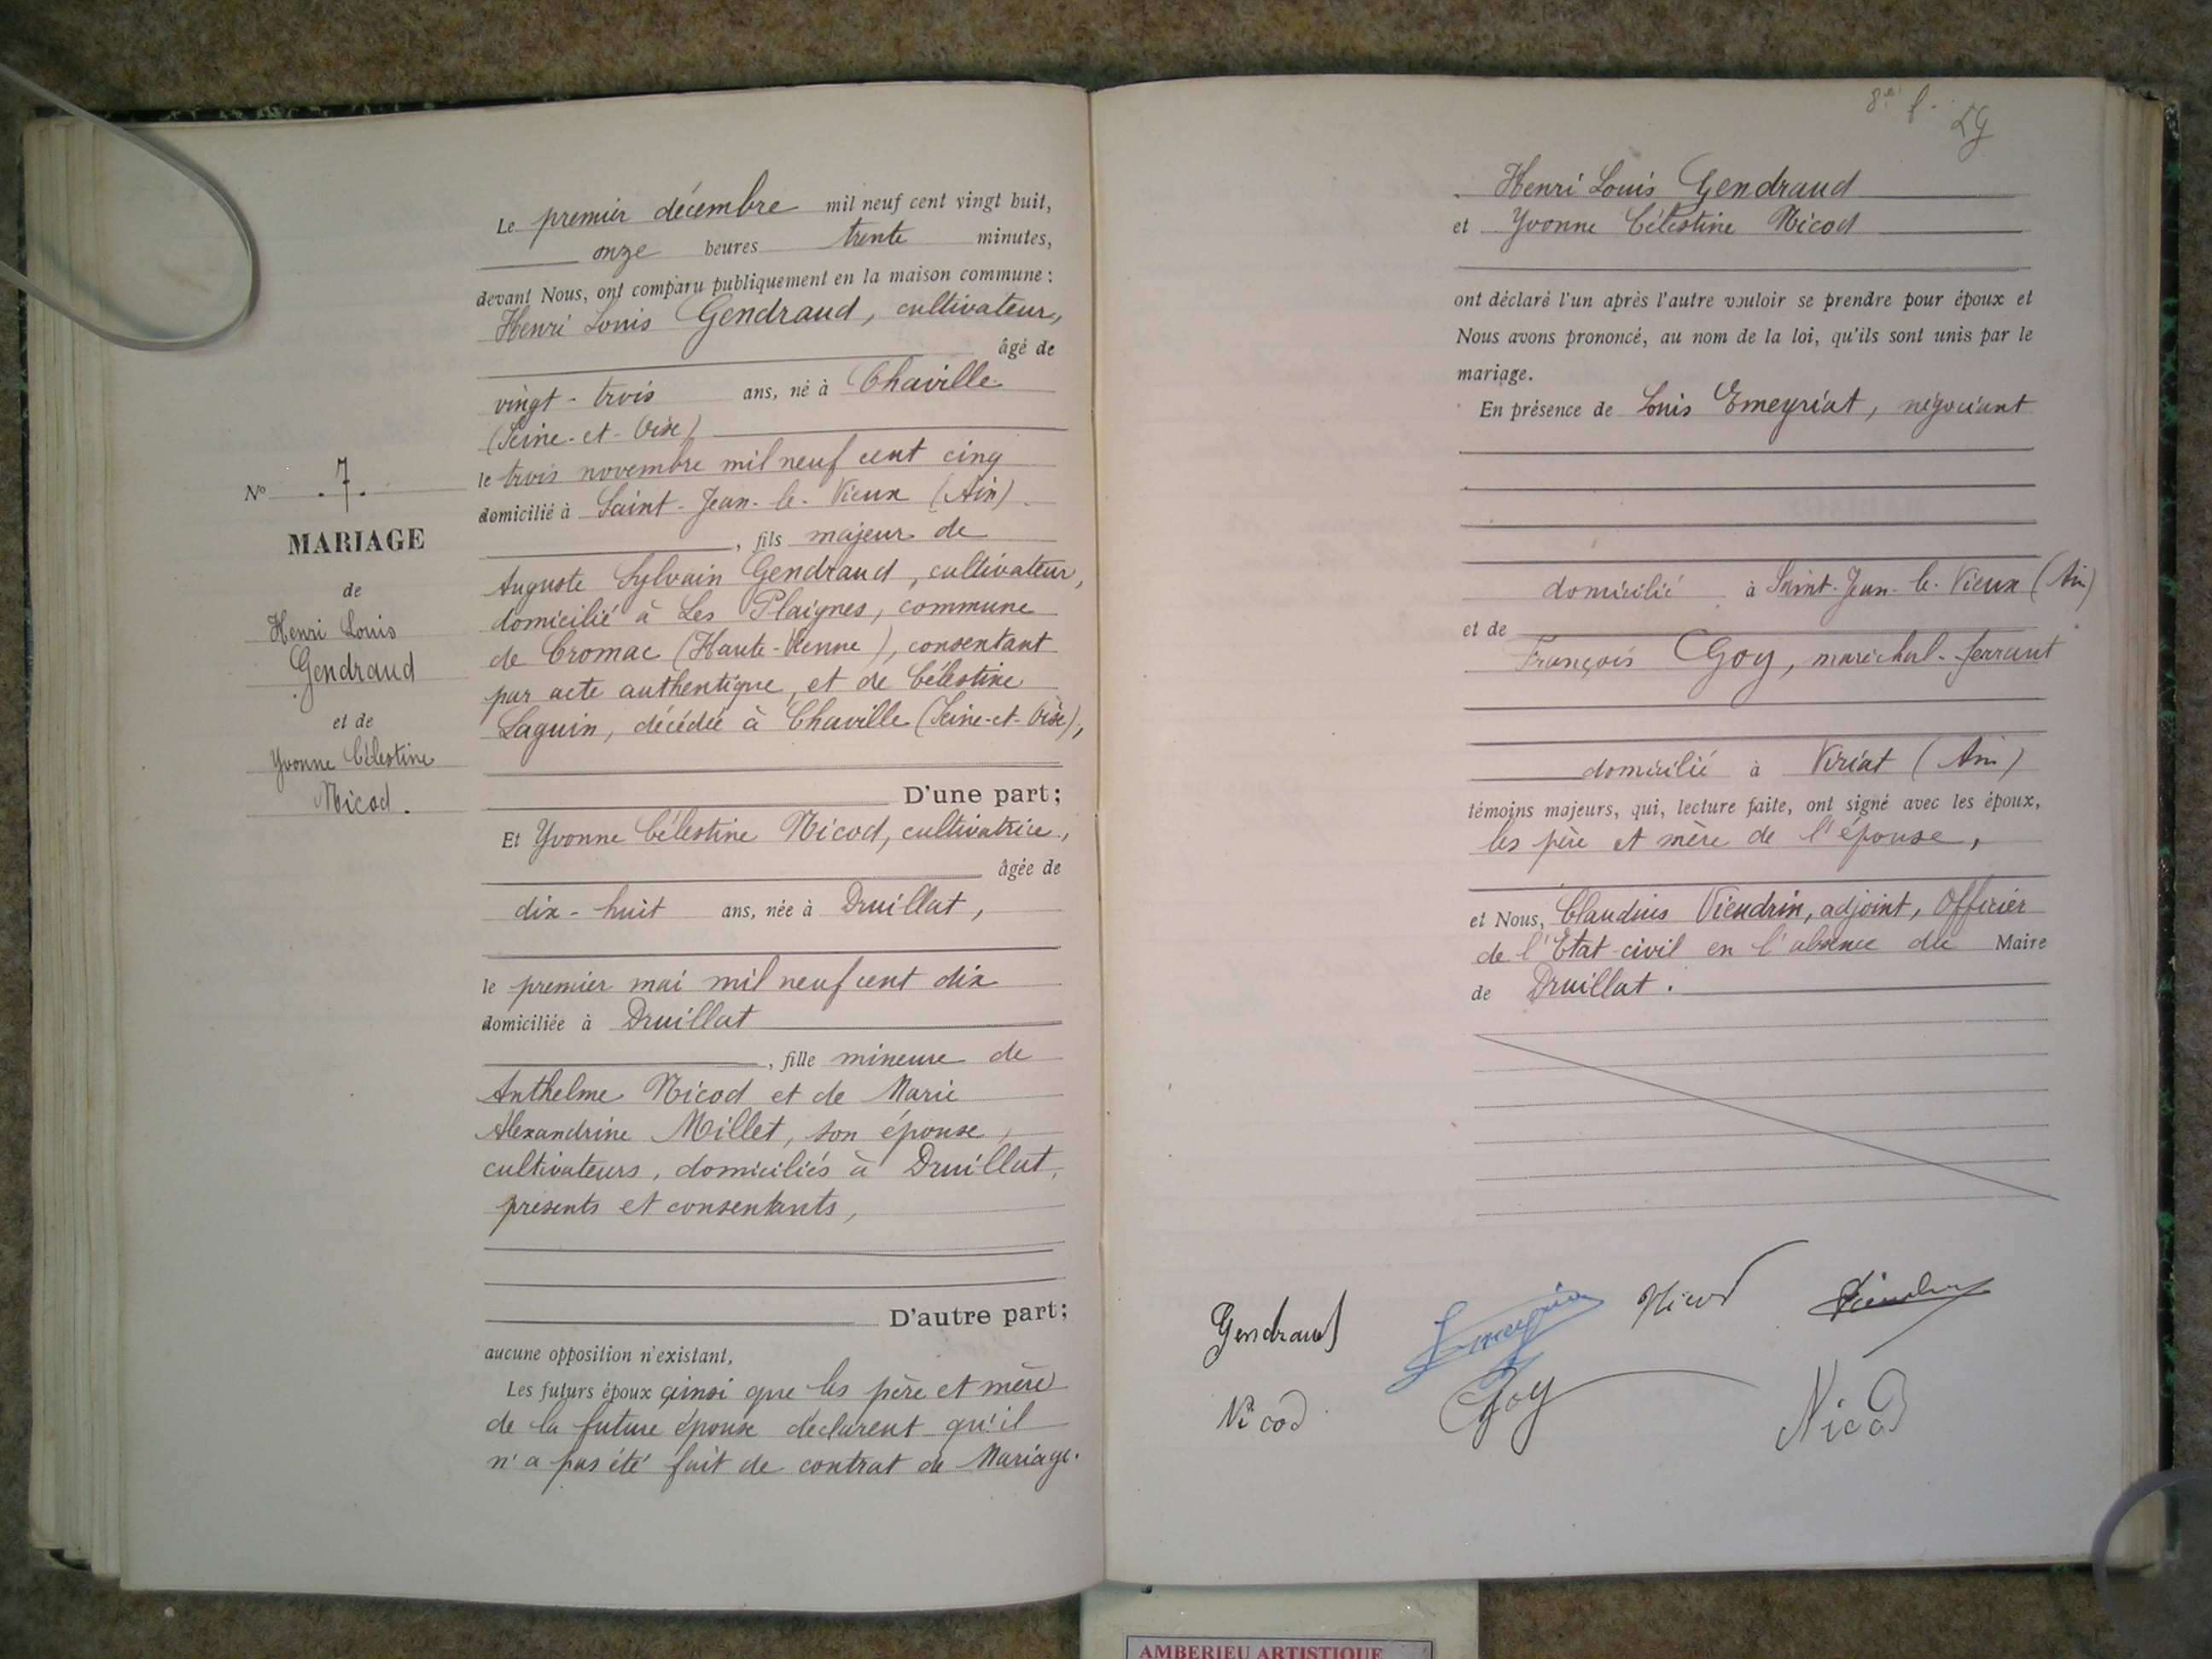 N° .7.
MARIAGE
de
Henri Louis
Gendraud
et de
Yvonne Célestine
Nicod.
Le premier décembre mil neuf cent vingt huit,
onze heures trente minutes,
devant Nous, ont comparu publiquement en la maison commune :
Henri Louis Gendraud, cultivateur,
âgé de
vingt-trois ans, né à Chaville
(Seine-et-Oise)
le trois novembre mil neuf cent cinq
domicilié à Saint-Jean-le-Vieux (Ain)
, fils majeur de
Auguste Sylvain Gendraud, cultivateur,
domicilié à Les Plaignes, commune
de Cromac (Haute-Vienne), consentant
par acte authentique, et de Célestine
Laguin, décédée à Chaville (Seine-et-Oise),
D'une part;
Et Yvonne Célestine Nicod, cultivatrice,
âgée de
dix-huit ans, née à Druillat,
le premier mai mil neuf cent dix
domiciliée à Druillat
, fille mineure de
Anthelme Nicod et de Marie
Alexandrine Millet, son épouse,
cultivateurs, domiciliés à Druillat,
présents et consentants,
D'autre part;
aucune opposition n'existant,
Les futurs époux ainsi que les père et mère
de la future épouse déclarent qu'il
n'a pas été fait de contrat de Mariage.
Henri Louis Gendraud
et Yvonne Célestine Nicod
ont déclaré l'un après l'autre vouloir se prendre pour époux et
Nous avons prononcé, au nom de la loi, qu'ils sont unis par le
mariage.
En présence de Louis Emeyriat, négociant
domicilié à Saint-Jean-le-Vieux (Ain)
et de
François Goy, maréchal-ferrant
domicilié à Viriat (Ain)
témoins majeurs, qui, lecture faite, ont signé avec les époux,
les père et mère de l'épouse,
et Nous, Claudius Viendrin, adjoint, Officier
de l'Etat-civil en l'absence du Maire
de Druillat.
Gendraud Nicod
Nicod Goy Nicod
AMBERIEU ARTISTIQUE